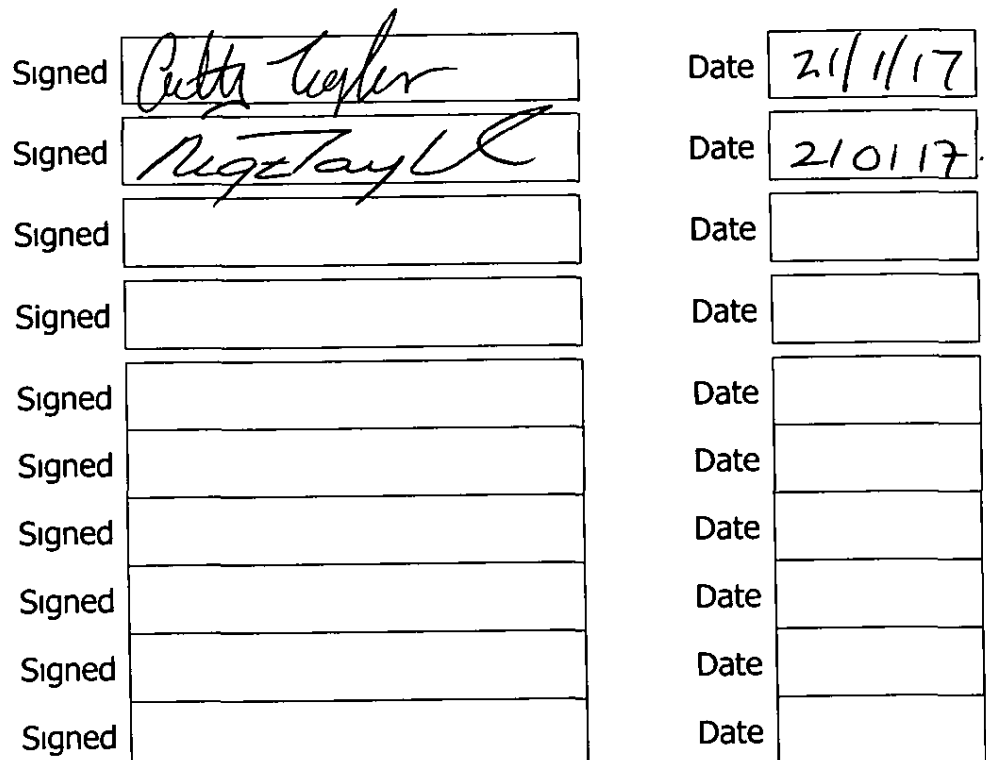 Signed Taylor Date 21/1/17
Signed Date 210117.
Signed Date
Signed Date
Signed Date
Signed Date
Signed Date
Signed Date
Signed Date
Signed Date